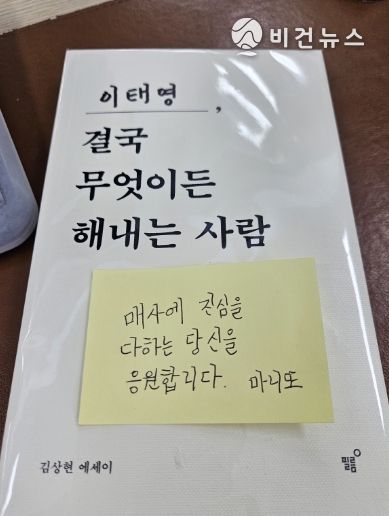 비건뉴스
이태영,
결국
무엇이든
해내는 사람
매사에 진심을
다하는 당신을
응원합니다. 마니또
김상현 에세이
필름